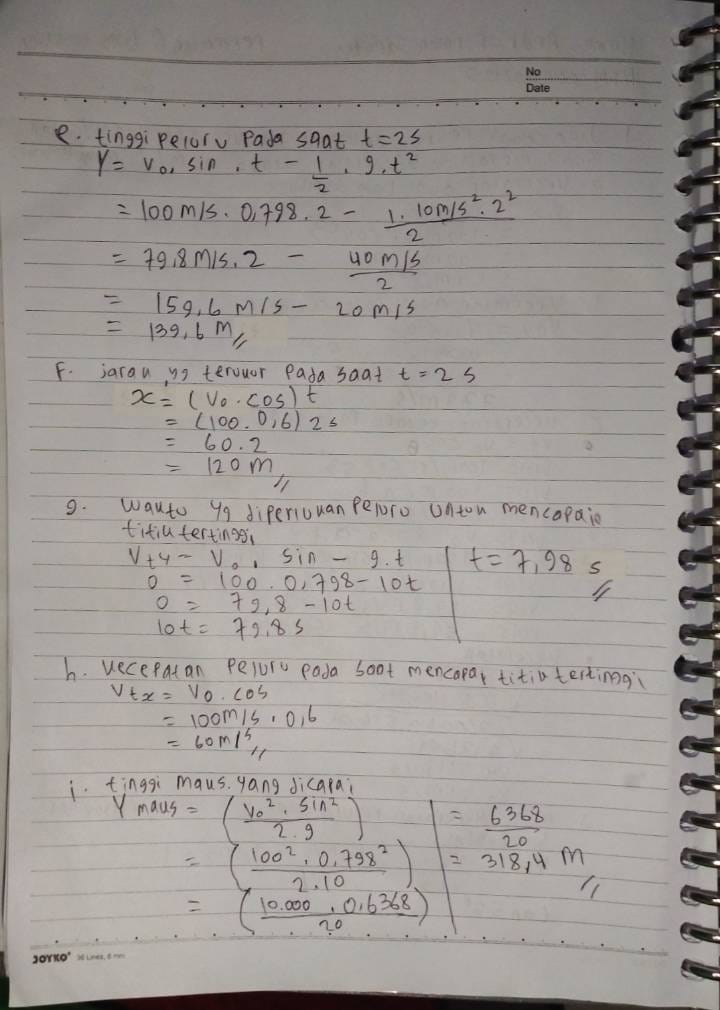 No
Date
e. tinggi peluru pada saat t=2s
Y = v₀. sin . t - 1/2 . g.t²
= 100 m/s . 0,798 . 2 - 1. 10m/s². 2²/2
= 79,8 m/s . 2 - 40 m/s/2
= 159,6 m/s - 20 m/s
= 139,6 m //
F. jarak yg terukur pada saat t = 2 s
x = (v₀ . cos) t
= (100. 0,6) 2s
= 60.2
= 120 m //
g. Waktu yg diperlukan Peluru untuk mencapai
titik tertinggi
Vty = V₀ . sin - g.t
0 = 100. 0,798 - 10t
0 = 79,8 - 10t
10t = 79,8s
t = 7,98 s //
h. kecepatan peluru pada saat mencapai titik tertinggi
Vtx = V₀ . cos
= 100m/s . 0,6
= 60 m/s //
i. tinggi maks. yang dicapai
Y maks = (V₀² . sin²/2.g)
= (100² . 0,798²/2.10)
= (10.000 . 0,6368/20)
= 6368/20
= 318,4 m //
JOYKO 36 Lines, 8 mm